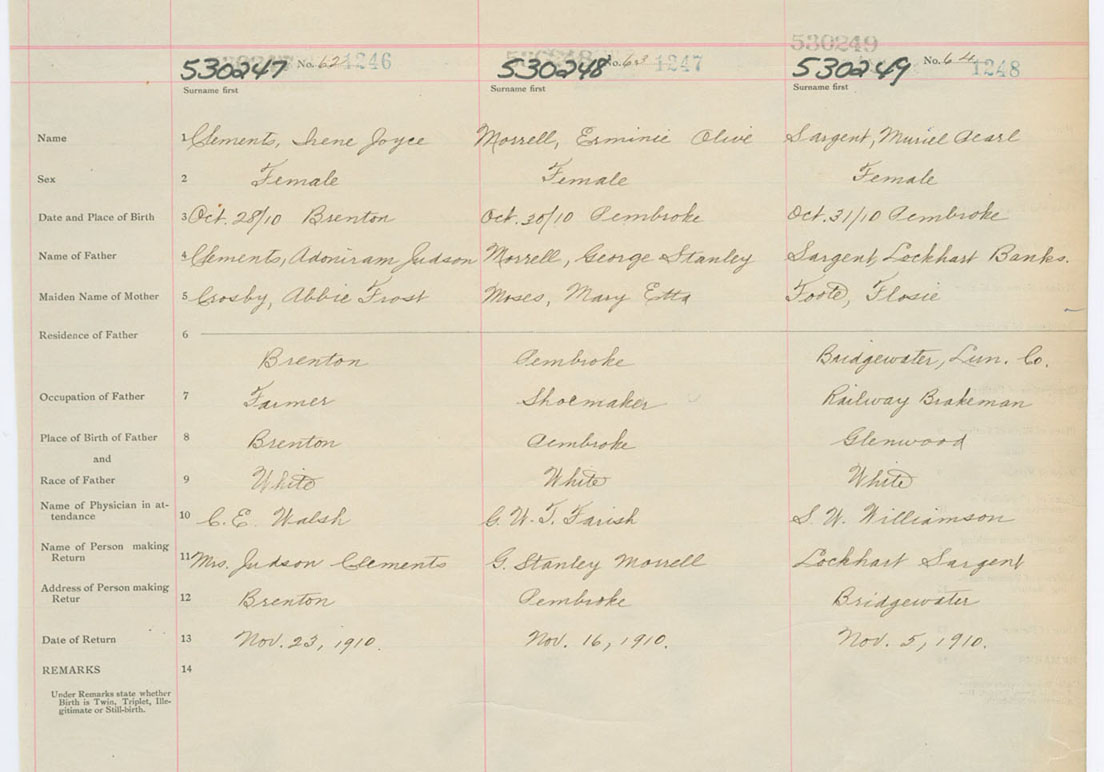 530249
530247 No. 62 1246 530248 No. 63 1247 530249 No. 64 1248
Surname first Surname first Surname first
Name 1 Clements, Irene Joyce Morrell, Erminie Olive Sargent, Muriel Pearl
Sex 2 Female Female Female
Date and Place of Birth 3 Oct. 28/10 Brenton Oct. 30/10 Pembroke Oct. 31/10 Pembroke
Name of Father 4 Clements, Adoniram Judson Morrell, George Stanley Sargent, Lockhart Banks.
Maiden Name of Mother 5 Crosby, Abbie Frost Moses, Mary Etta Foote, Flosie
Residence of Father 6
Brenton Pembroke Bridgewater, Lun. Co.
Occupation of Father 7 Farmer Shoemaker Railway Brakeman
Place of Birth of Father 8 Brenton Pembroke Glenwood
and
Race of Father 9 White White White
Name of Physician in at-
tendance 10 C. E. Walsh G. W. T. Farish S. W. Williamson
Name of Person making
Return 11 Mrs. Judson Clements G. Stanley Morrell Lockhart Sargent
Address of Person making
Retur 12 Brenton Pembroke Bridgewater
Date of Return 13 Nov. 23, 1910. Nov. 16, 1910. Nov. 5, 1910.
REMARKS 14
Under Remarks state whether
Birth is Twin, Triplet, Ille-
gitimate or Still-birth.